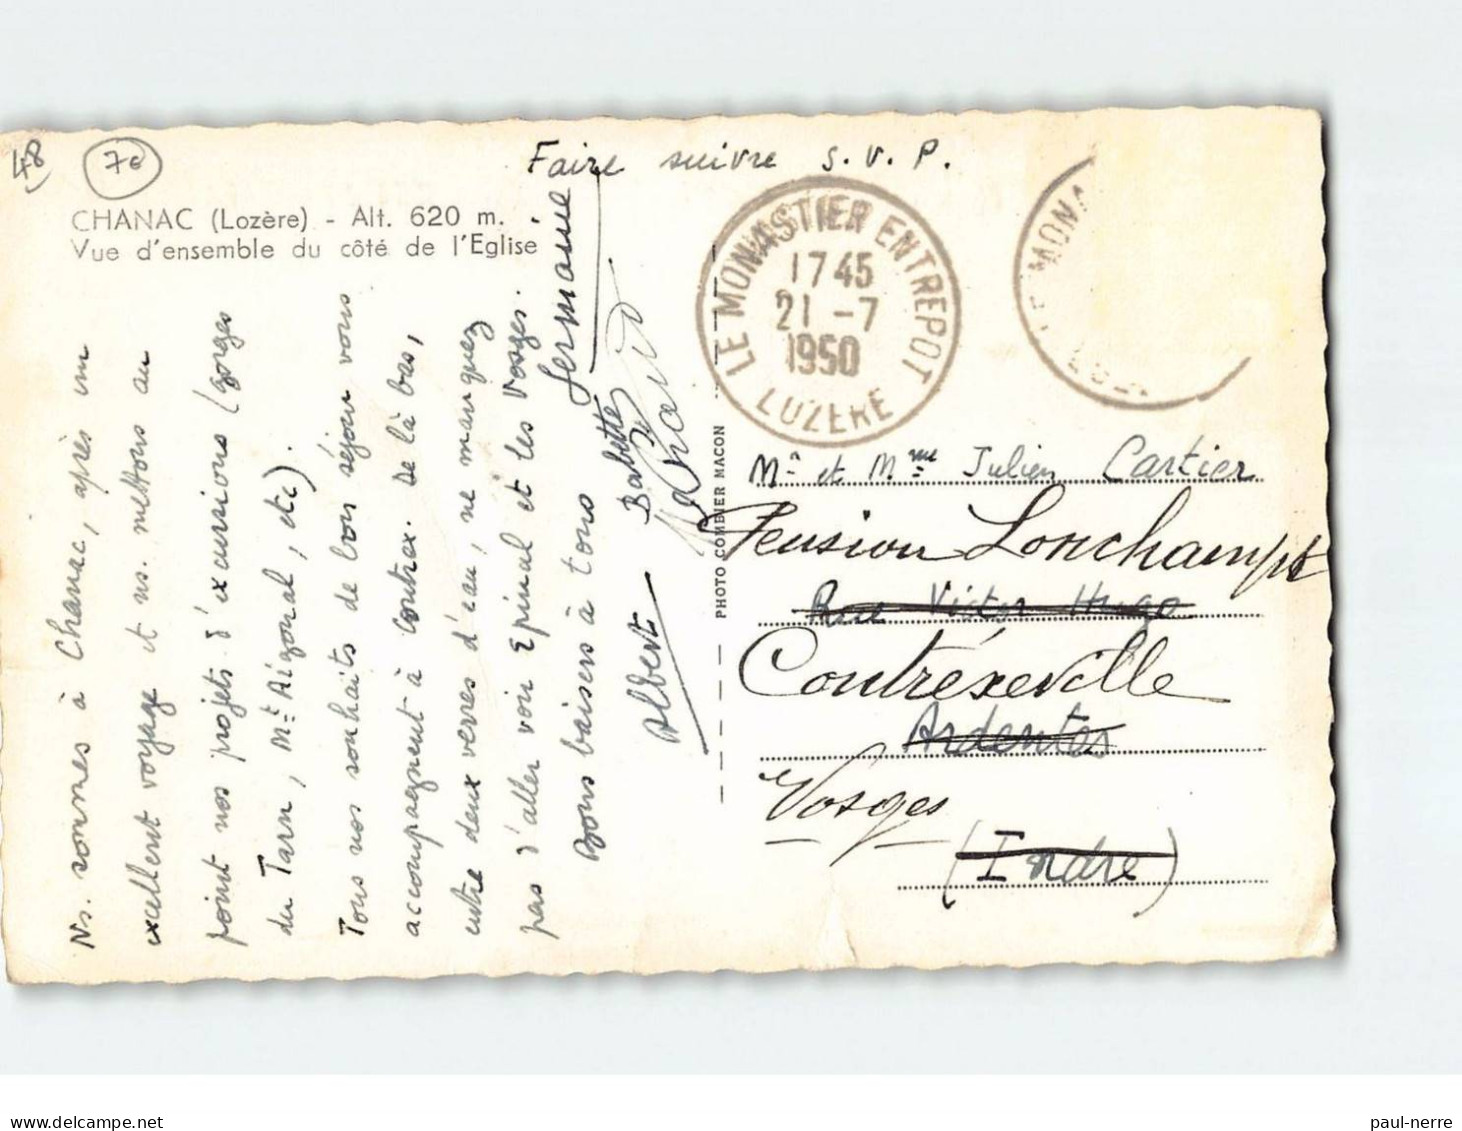 48
7€
Faire suivre s.v.p.
CHANAC (Lozère) - Alt. 620 m.
Vue d'ensemble du côté de l'Eglise
Ns. sommes à Chanac, après un
excellent voyage et ns. mettons au
point nos projets d'excursions (Gorges
du Tarn, Mt Aigoual, etc).
Tous nos souhaits de bon séjour vous
accompagnent à Contrex. De là bas,
entre deux verres d'eau, ne manquez
pas d'aller voir Epinal et les Vosges.
Bons baisers à tous
Germaine
Babette
Albert
PHOTO COMBIER MACON
LE MONASTIER ENTREPOT
17 45
21 -7
1950
LOZERE
LE MONA
Mr et Mme Julien Cartier
Pension Lonchampt
Rue Victor Hugo
Contréxeville
Ardentes
Vosges
(Indre)
paul-nerre